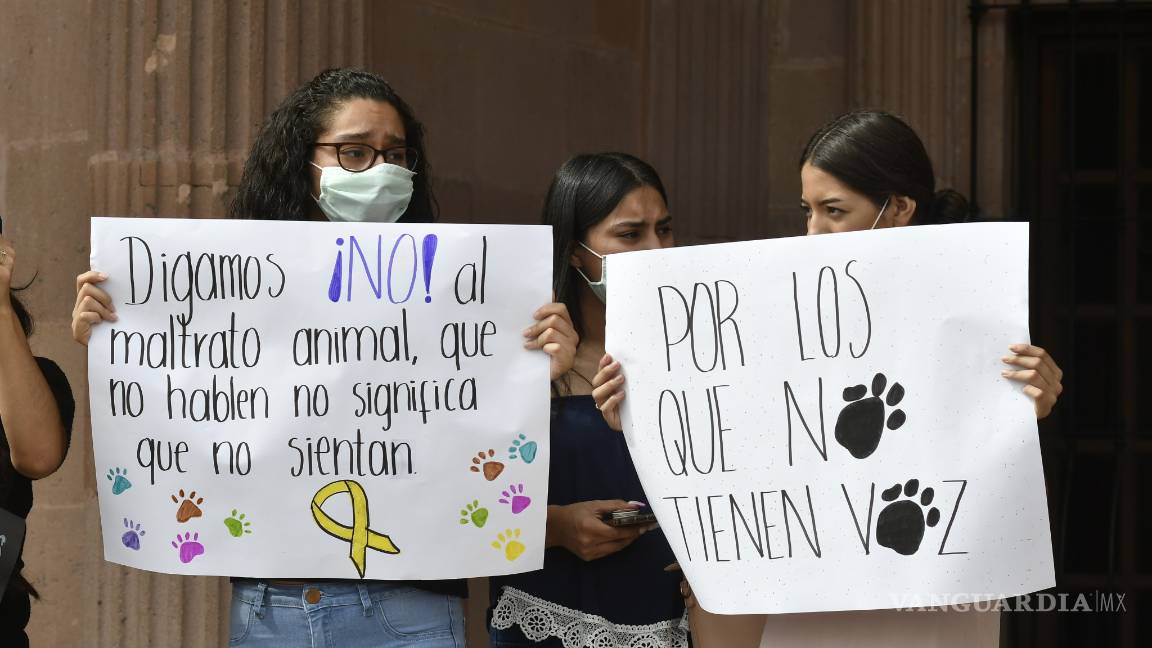 Digamos ¡NO! al
maltrato animal, que
no hablen no significa
que no sientan.
POR LOS
QUE NO
TIENEN VOZ
VANGUARDIA|MX